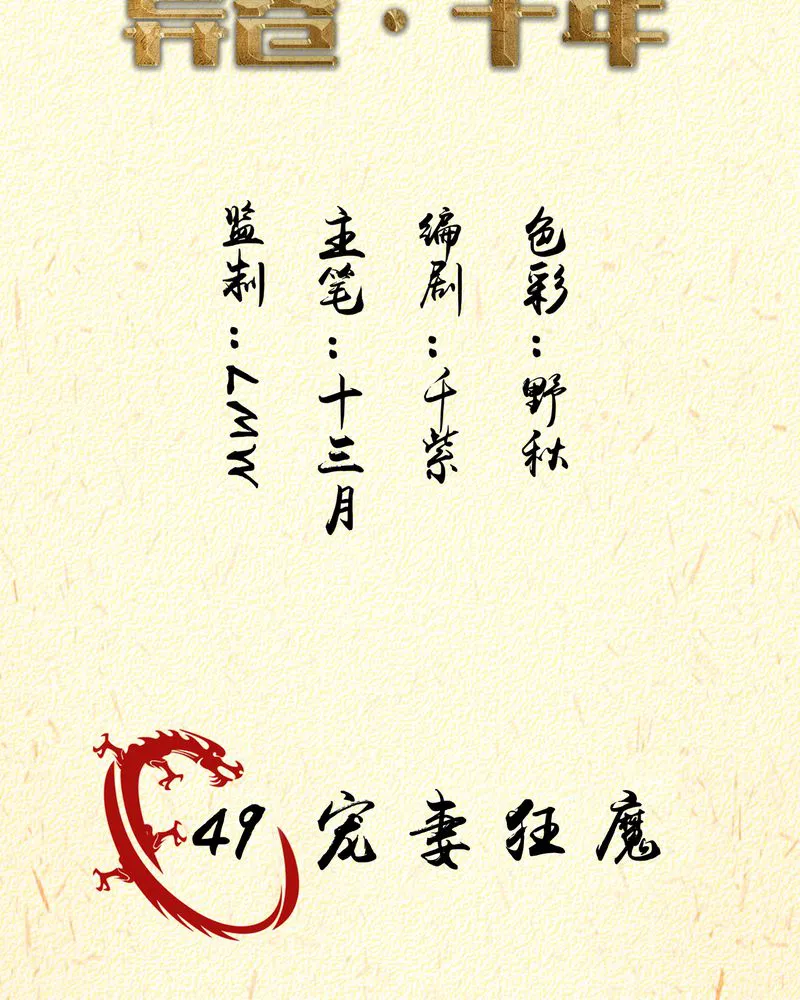 ·千年
监制：
主笔：十三月
编剧：千紫
色彩：野秋
49 宠妻狂魔